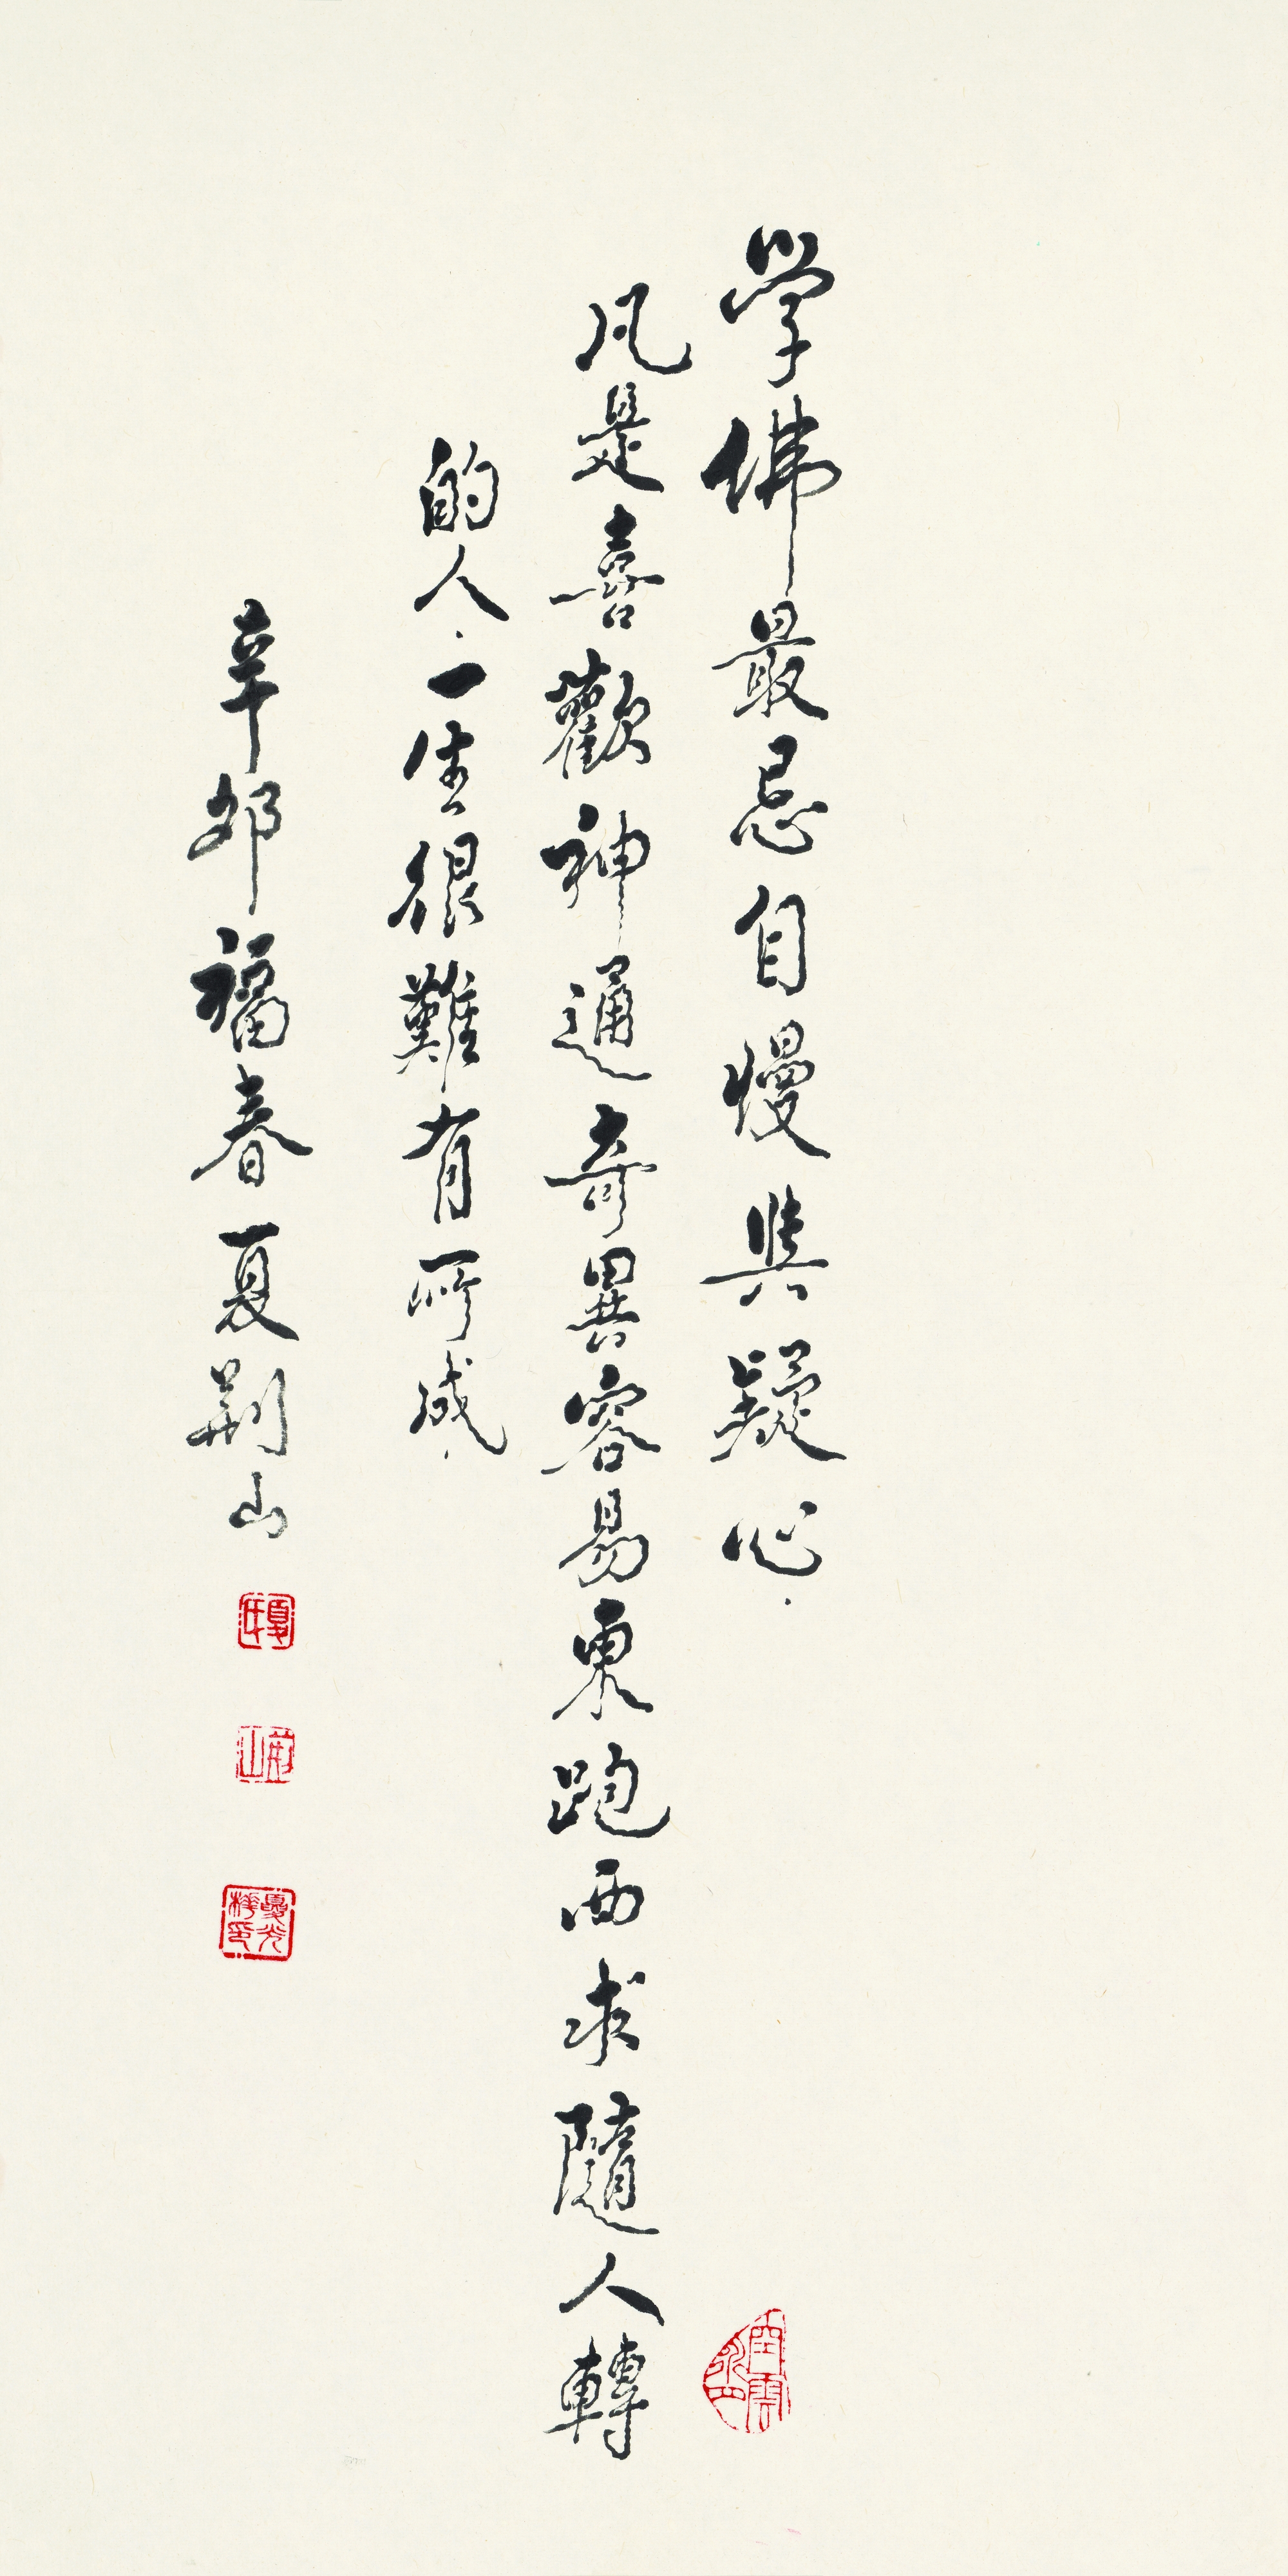 学佛最忌自慢與疑心.
凡是喜歡神通奇異容易東跑西求隨人轉
的人.一生很難有所成.
辛卯福春夏荆山
夏氏
荆山